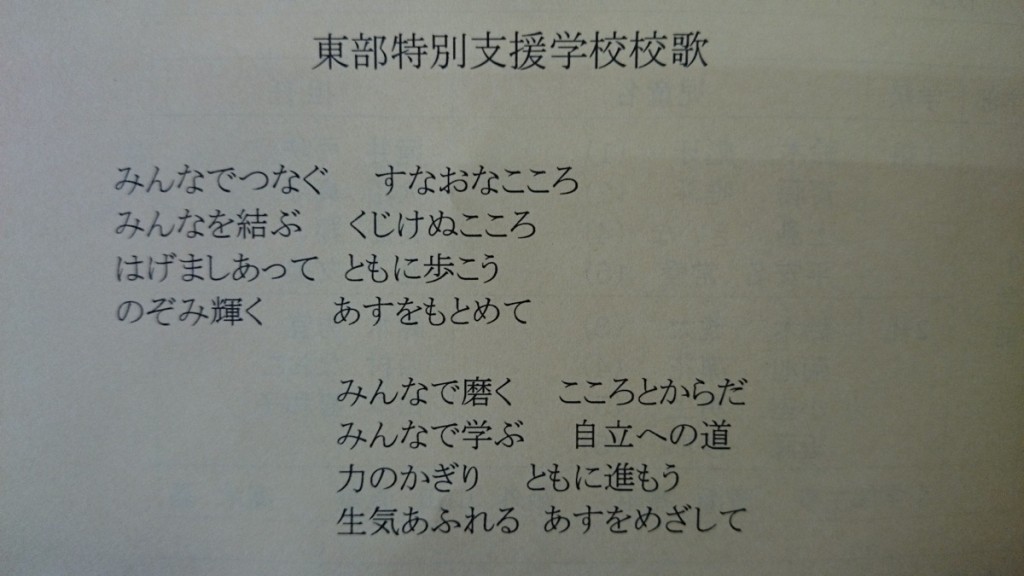 東部特別支援学校校歌
みんなでつなぐ　すなおなこころ
みんなを結ぶ　くじけぬこころ
はげましあって　ともに歩こう
のぞみ輝く　あすをもとめて
みんなで磨く　こころとからだ
みんなで学ぶ　自立への道
力のかぎり　ともに進もう
生気あふれる　あすをめざして